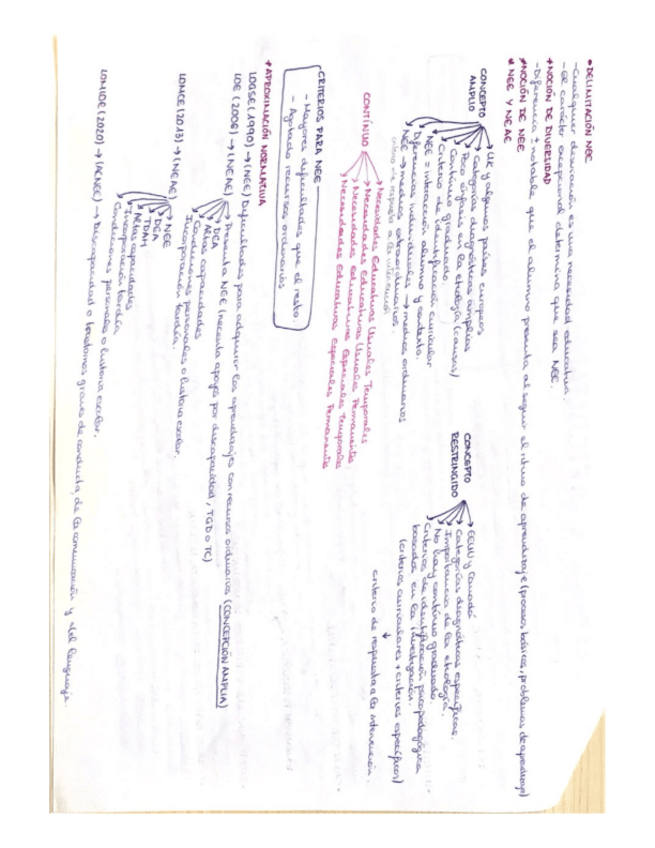 • DELIMITACIÓN NEE
- Cualquier desviación es una necesidad educativa.
- El carácter excepcional determina que sea NEE.
• NOCIÓN DE DIVERSIDAD
- Diferencia ± notable que el alumno presenta al seguir el ritmo de aprendizaje (procesos básicos, problemas de aprendizaje)
• NOCIÓN DE NEE
• NEE Y NEAE
CONCEPTO AMPLIO
UK y algunos países europeos
Categorías diagnósticas amplias
Poco énfasis en la etiología (causas)
Continuo graduado.
Criterio de identificación curricular
NEE = interacción alumno y contexto.
Diferencias individuales → medios ordinarios
NEE → medios extraordinarios.
criterio de respuesta a la intervención
CONCEPTO RESTRINGIDO
EEUU y Canadá
Categorías diagnósticas específicas.
Importancia de la etiología.
No hay continuo graduado
Criterios de identificación psicopedagógica
basada en la investigación.
(criterios curriculares + criterios específicos)
↓
criterio de respuesta a la intervención.
CONTINUO
Necesidades Educativas Usuales Temporales
Necesidades Educativas Usuales Permanentes
Necesidades Educativas Especiales Temporales
Necesidades Educativas Especiales Permanentes
CRITERIOS PARA NEE
- Mayores dificultades que el resto
- Agotado recursos ordinarios
• APROXIMACIÓN NORMATIVA
LOGSE (1990) → (NEE) Dificultades para adquirir los aprendizajes con recursos ordinarios (CONCEPCIÓN AMPLIA)
LOE (2006) → (NEAE)
Presenta NEE (necesita apoyos por discapacidad, TGD o TC)
DEA
Altas capacidades
Condiciones personales o historia escolar.
Incorporación tardía.
LOMCE (2013) → (NEAE)
NEE
DEA
TDAH
Altas capacidades
Incorporación tardía
Condiciones personales o historia escolar.
LOMLOE (2020) → (ACNEE) → Discapacidad o trastornos graves de conducta, de la comunicación y del lenguaje.